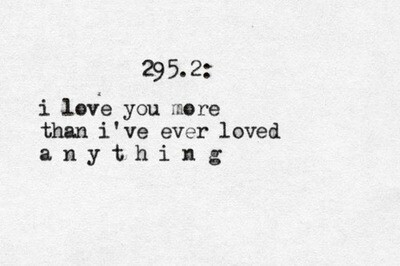 295.2:
i love you more
than i've ever loved
a n y t h i n g